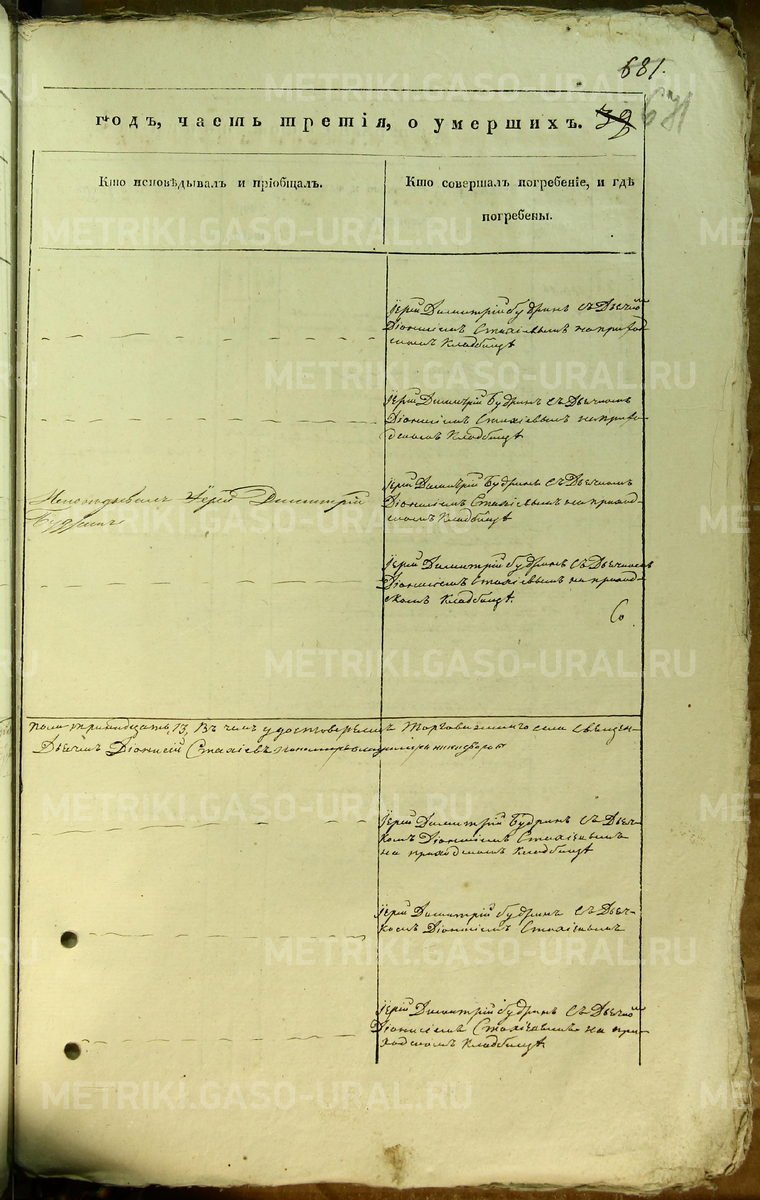 681.
годъ, часть третія, о умершихъ. 39 671
Кто исповѣдывалъ и пріобщалъ.
Кто совершалъ погребеніе, и гдѣ
погребены.
Іерей Димитрій Будринъ съ Дьячко
Діонисіемъ Стахіевымъ на приход
скомъ Кладбищѣ
Іерей Димитрій Будринъ съ Дьячкомъ
Діонисіемъ Стахіевымъ на прихо-
дскомъ Кладбищѣ
Исповѣдывалъ Іерей Димитрій
Будринъ
Іерей Димитрій Будринъ съ Дьячкомъ
Діонисіемъ Стахіевымъ на приход-
скомъ Кладбищѣ
Іерей Димитрій Будринъ съ Дьячкомъ
Діонисіемъ Стахіевымъ на приход-
скомъ Кладбищѣ.
Со
пола тринадцать, 13, Въ чемъ удостовѣряемъ села Священ-
Дьячекъ Діонисій Стахіевъ пономарь
Іерей Димитрій Будринъ съ Дьяч-
комъ Діонисіемъ Стахіевымъ
на приходскомъ Кладбищѣ
Іерей Димитрій Будринъ съ Дьяч-
комъ Діонисіемъ Стахіевымъ
Іерей Димитрій Будринъ съ Дьячко
Діонисіемъ Стахіевымъ на при-
ходскомъ Кладбищѣ.
METRIKI.GASO-URAL.RU